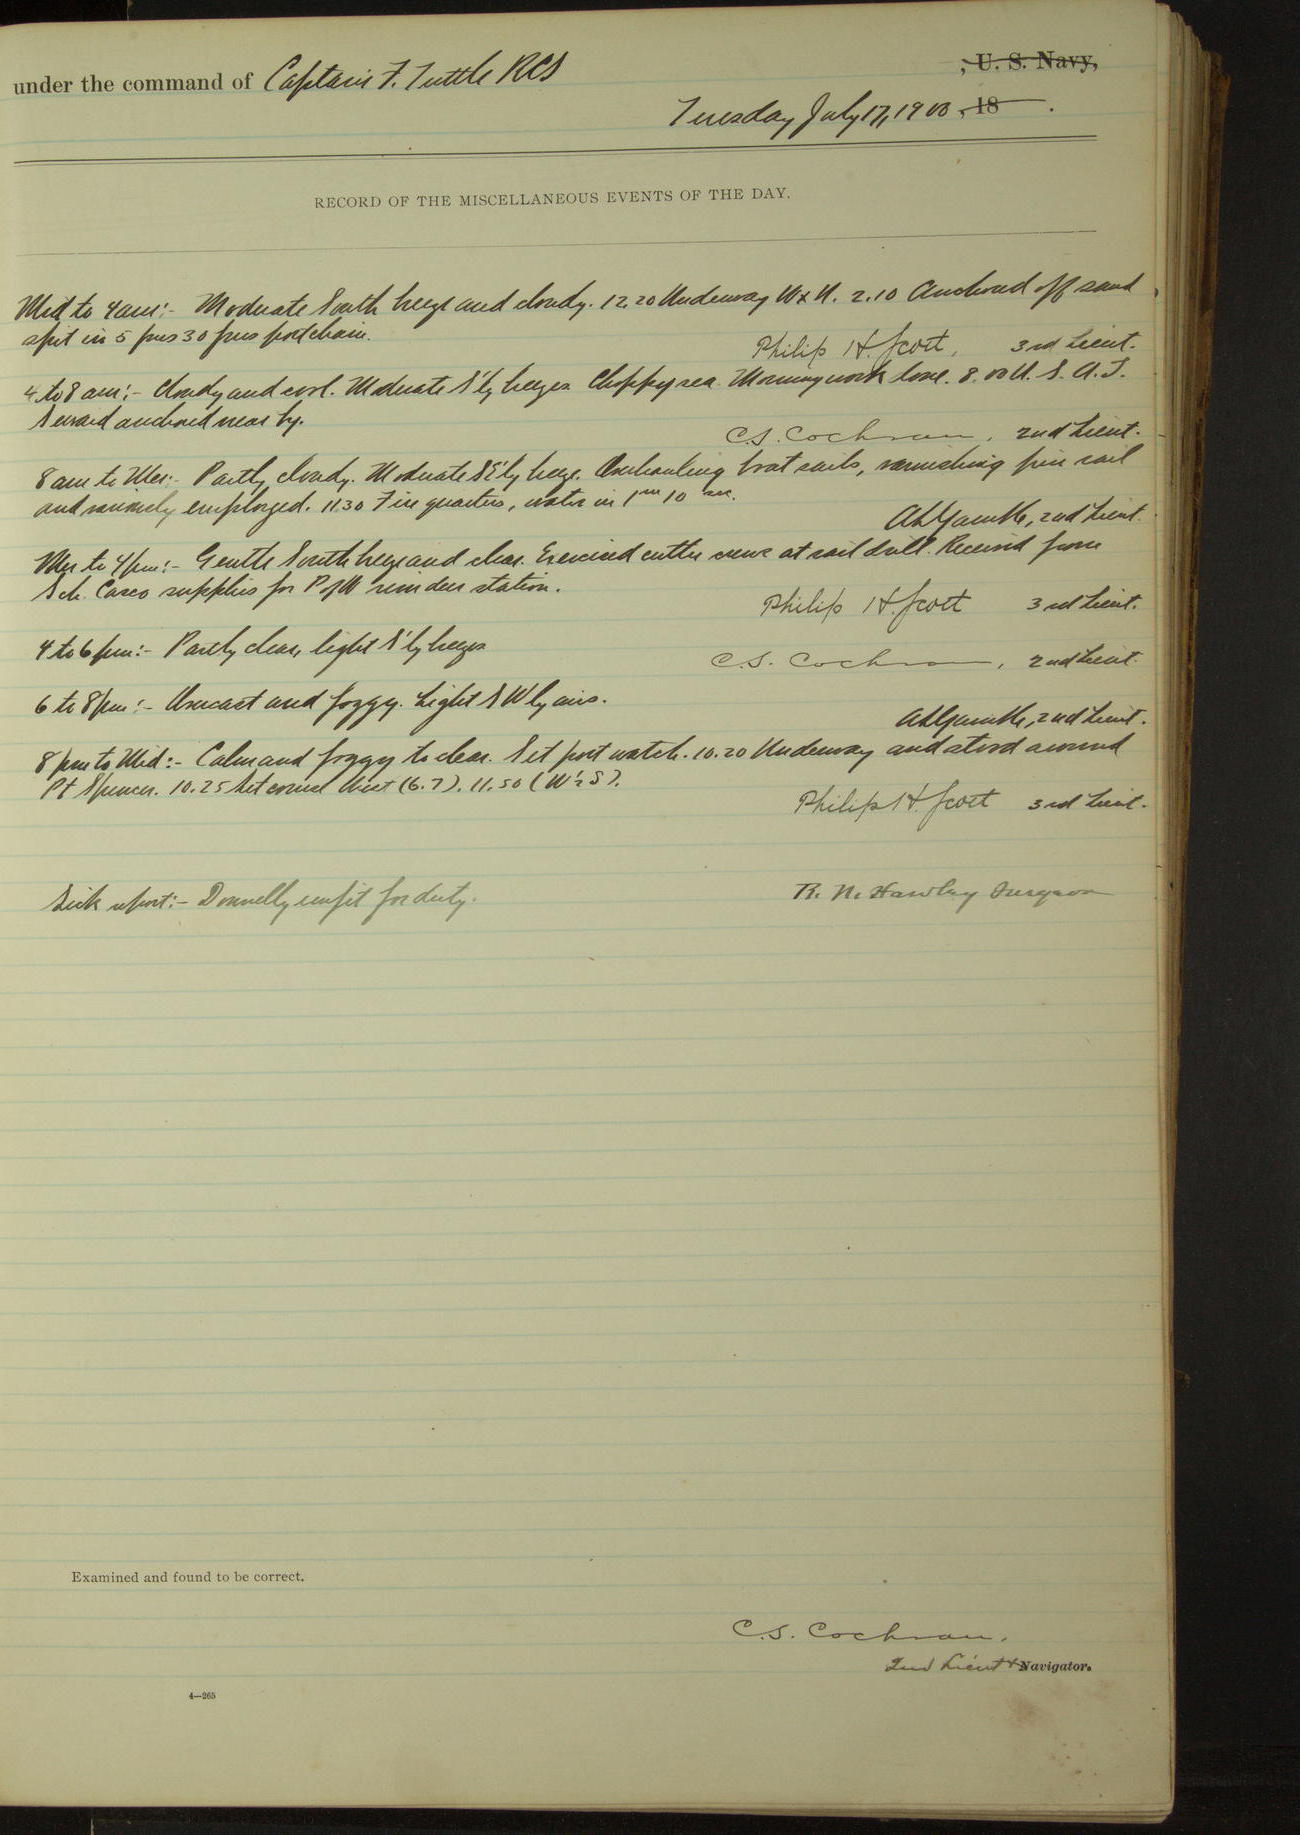 under the command of Captain F. Tuttle RCS , U. S. Navy,
Tuesday July 17, 1900, 18 .
RECORD OF THE MISCELLANEOUS EVENTS OF THE DAY.
Mid to 4 am:- Moderate South breeze and cloudy. 12.20 Underway W x N. 2.10 Anchored off sand
spit in 5 fms 30 fms port chain.
Philip H. Scott, 3rd Lieut.
4 to 8 am:- Cloudy and cool. Moderate S'ly breezes Choppy sea. Morning work done. 8.00 U. S. A. T.
Seward anchored near by.
C.S. Cochran, 2nd Lieut.
8 am to Mer:- Partly cloudy. Moderate SE'ly breeze. Overhauling boat sails, varnishing pin rail
and variously employed. 11.30 Fire quarters, water in 1m 10 sec.
2nd Lieut.
Mer to 4 pm:- Gentle South breeze and clear. Exercised cutter crews at sail drill. Received from
Sch. Casco supplies for P of W reindeer station.
Philip H. Scott 3rd Lieut.
4 to 6 pm:- Partly clear, light S'ly breezes
C.S. Cochran, 2nd Lieut.
6 to 8 pm:- Overcast and foggy. Light SW'ly airs.
2nd Lieut.
8 pm to Mid:- Calm and foggy to clear. Set port watch. 10.20 Underway and stood around
Pt Spencer. 10.25 Set course West (6.7). 11.50 (W½S).
Philip H. Scott 3rd Lieut.
Sick report:- Donnelly unfit for duty.
R. N. Hawley Surgeon
Examined and found to be correct.
C.S. Cochran,
2nd Lieut & Navigator.
4—265